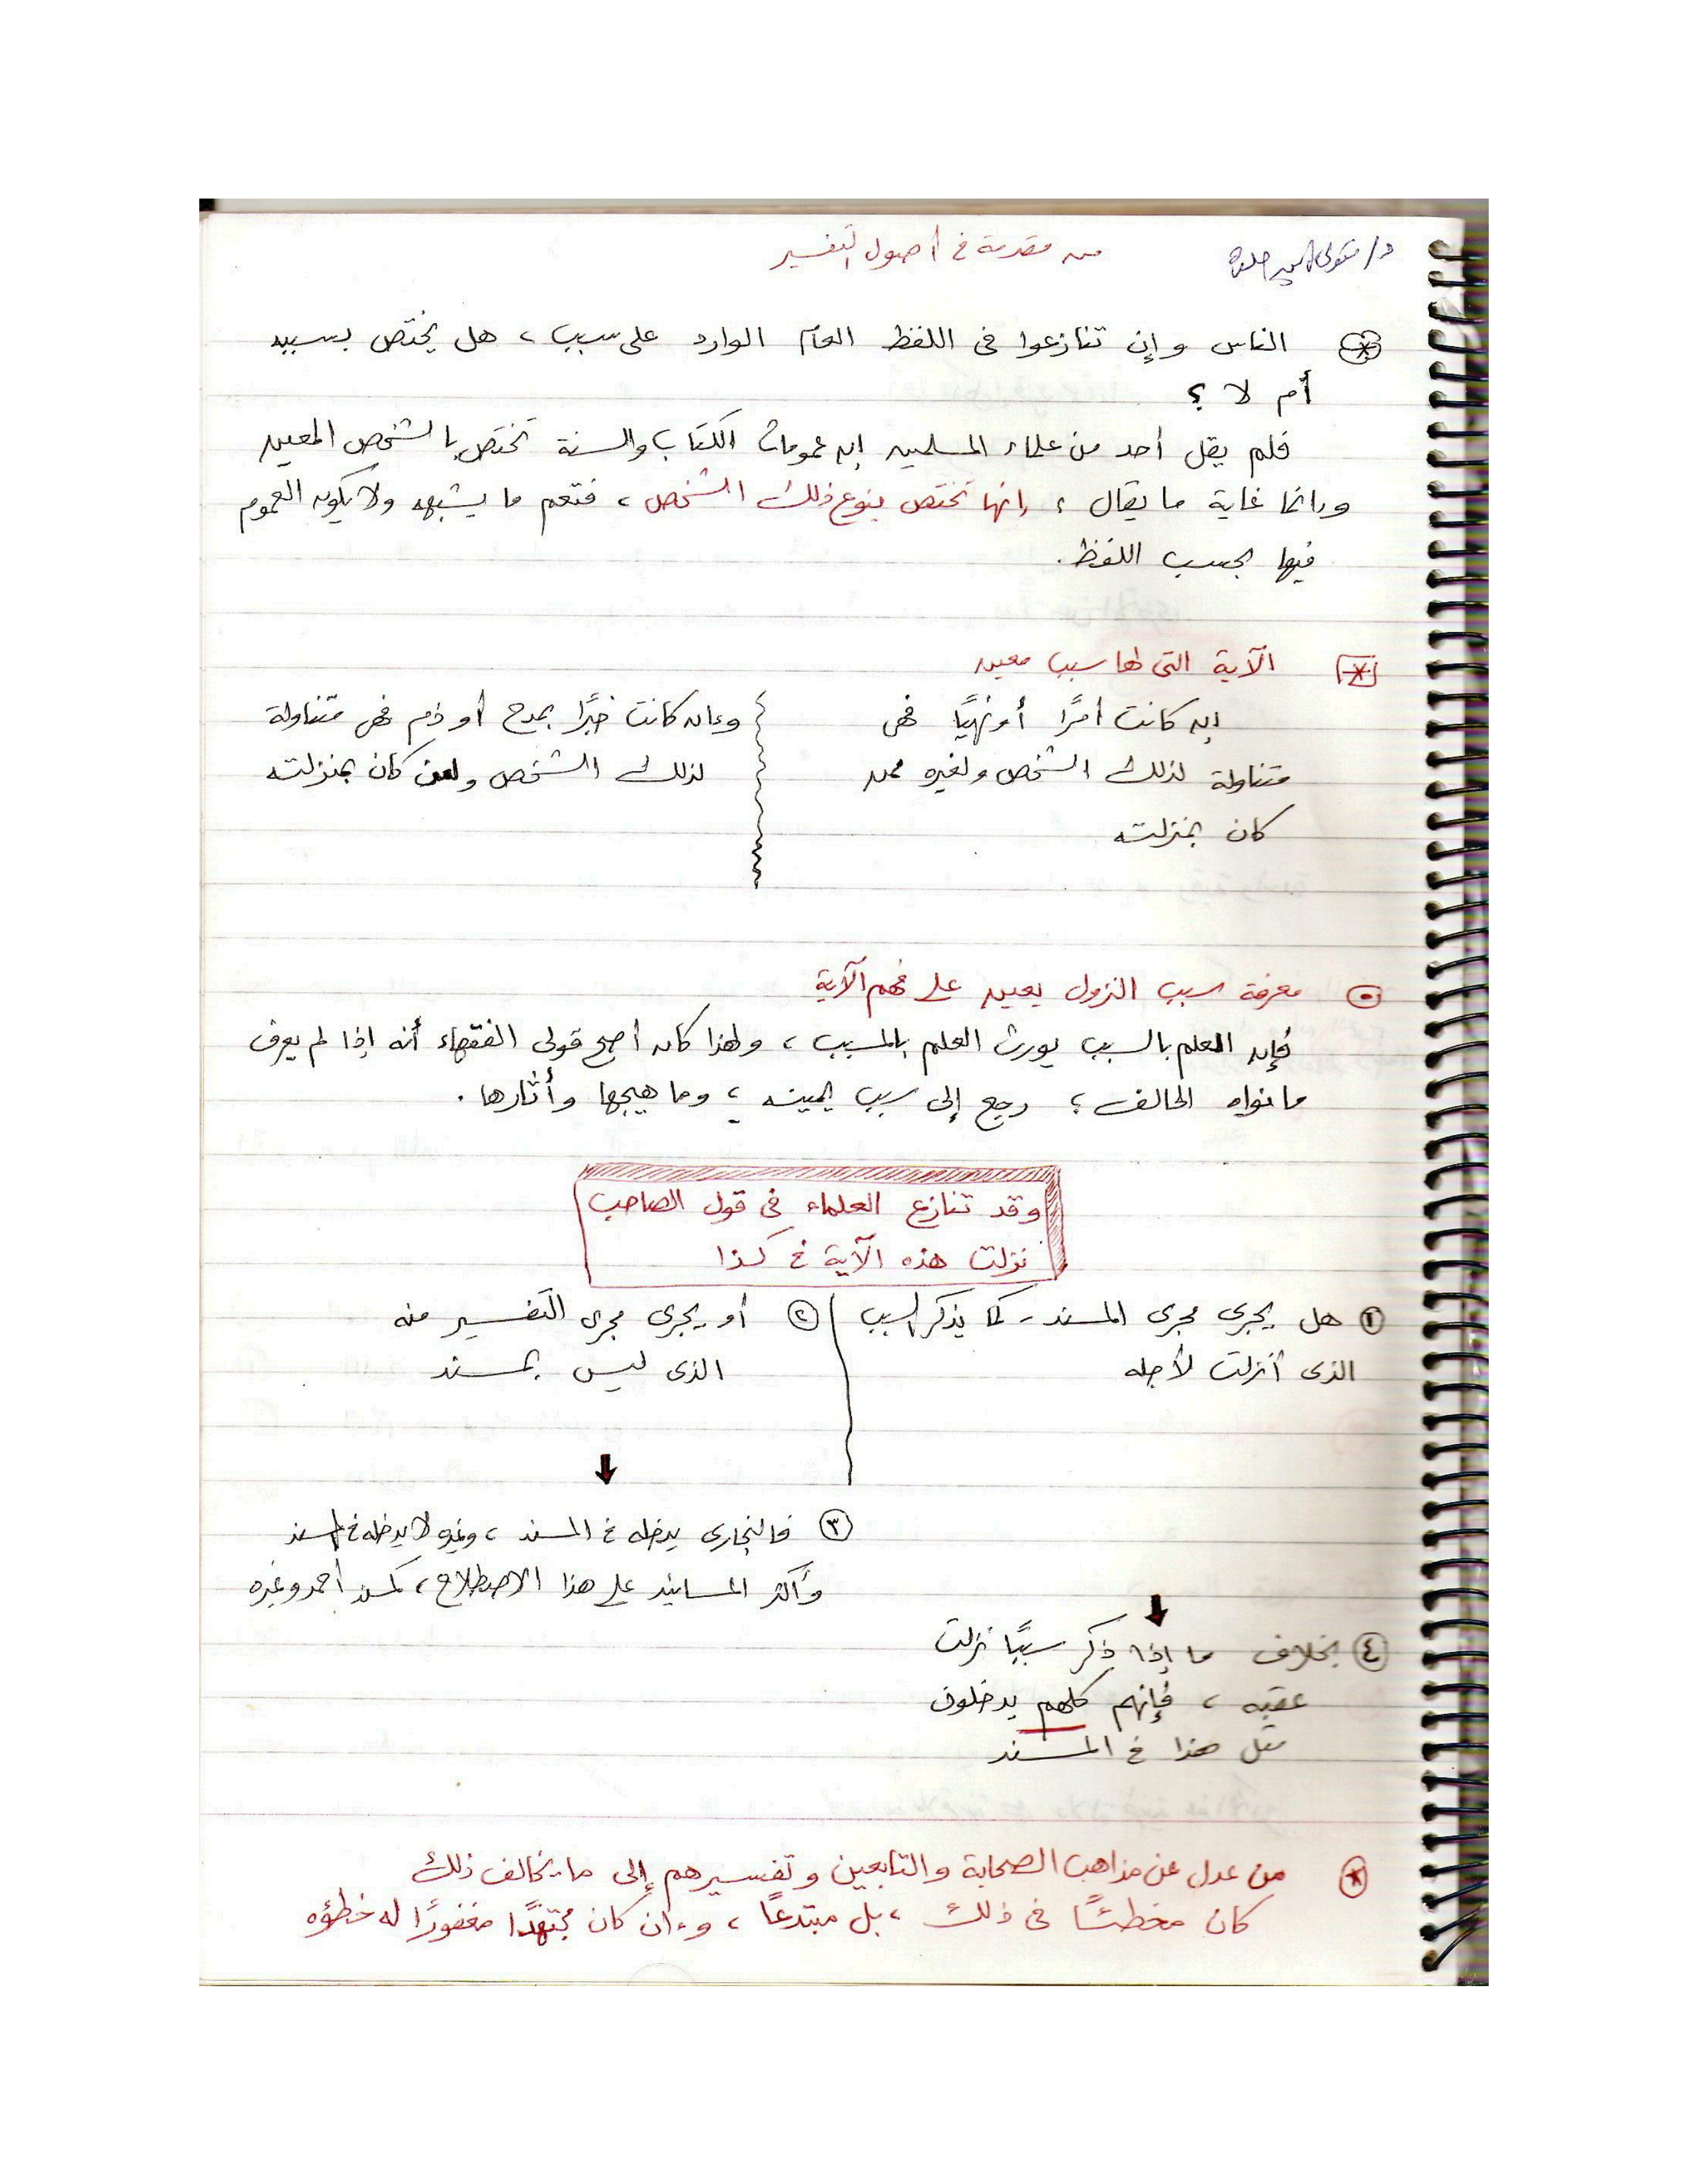 من مقدمة في أصول التفسير
د/ متولى
الناس وإن تنازعوا فى اللفظ العام الوارد على سبب، هل يختص بسببه
أم لا ؟
فلم يقل أحد من علماء المسلمين إن عمومات الكتاب والسنة تختص بالشخص المعين
وإنما غاية ما يقال ؛ إنها تختص بنوع ذلك الشخص، فتعم ما يشبهه ولا يكون العموم
فيها بحسب اللفظ.
الآية التى لها سبب معين
إن كانت أمرًا أو نهيًا فهى
متناولة لذلك الشخص ولغيره ممن
كان بمنزلته
وإن كانت خبرًا بمدح أو ذم فهى متناولة
لذلك الشخص ولمن كان بمنزلته
معرفة سبب النزول يعين على فهم الآية
فإن العلم بالسبب يورث العلم بالمسبب، ولهذا كان أصح قولى الفقهاء أنه إذا لم يعرف
ما نواه الحالف؛ رجع إلى سبب يمينه؛ وما هيجها وأثارها.
وقد تنازع العلماء فى قول الصاحب
نزلت هذه الآية في كذا
① هل يجرى مجرى المسند - كما يذكر السبب
الذى أنزلت لأجله
② أو يجرى مجرى التفسير منه
الذى ليس بمسند
③ فالبخارى يدخله في المسند، وغيره لا يدخله في المسند
وأكثر المسانيد على هذا الاصطلاح، كمسند أحمد وغيره
④ بخلاف ما إذا ذكر سببًا نزلت
عقبه، فإنهم كلهم يدخلون
مثل هذا في المسند
من عدل عن مذاهب الصحابة والتابعين وتفسيرهم إلى ما يخالف ذلك
كان مخطئًا فى ذلك، بل مبتدعًا، وإن كان مجتهدًا مغفورًا له خطؤه